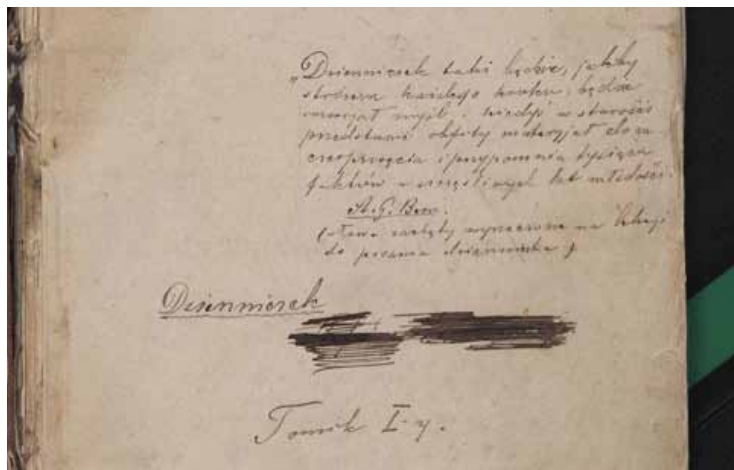 „Dzienniczek taki będzie, jakby
stróżem każdego kroku, będzie
rozwijał myśl, kiedyś w starości
przedstawi obfity materyjał do za
czerpnięcia i przypomnie tysiące
faktów z szczęśliwych lat młodości.
A. G. Bem.
(słowa zachęty wyrzeczone na lekcyi
do pisania dzienniczka)
Dzienniczek
Tomik I-y.